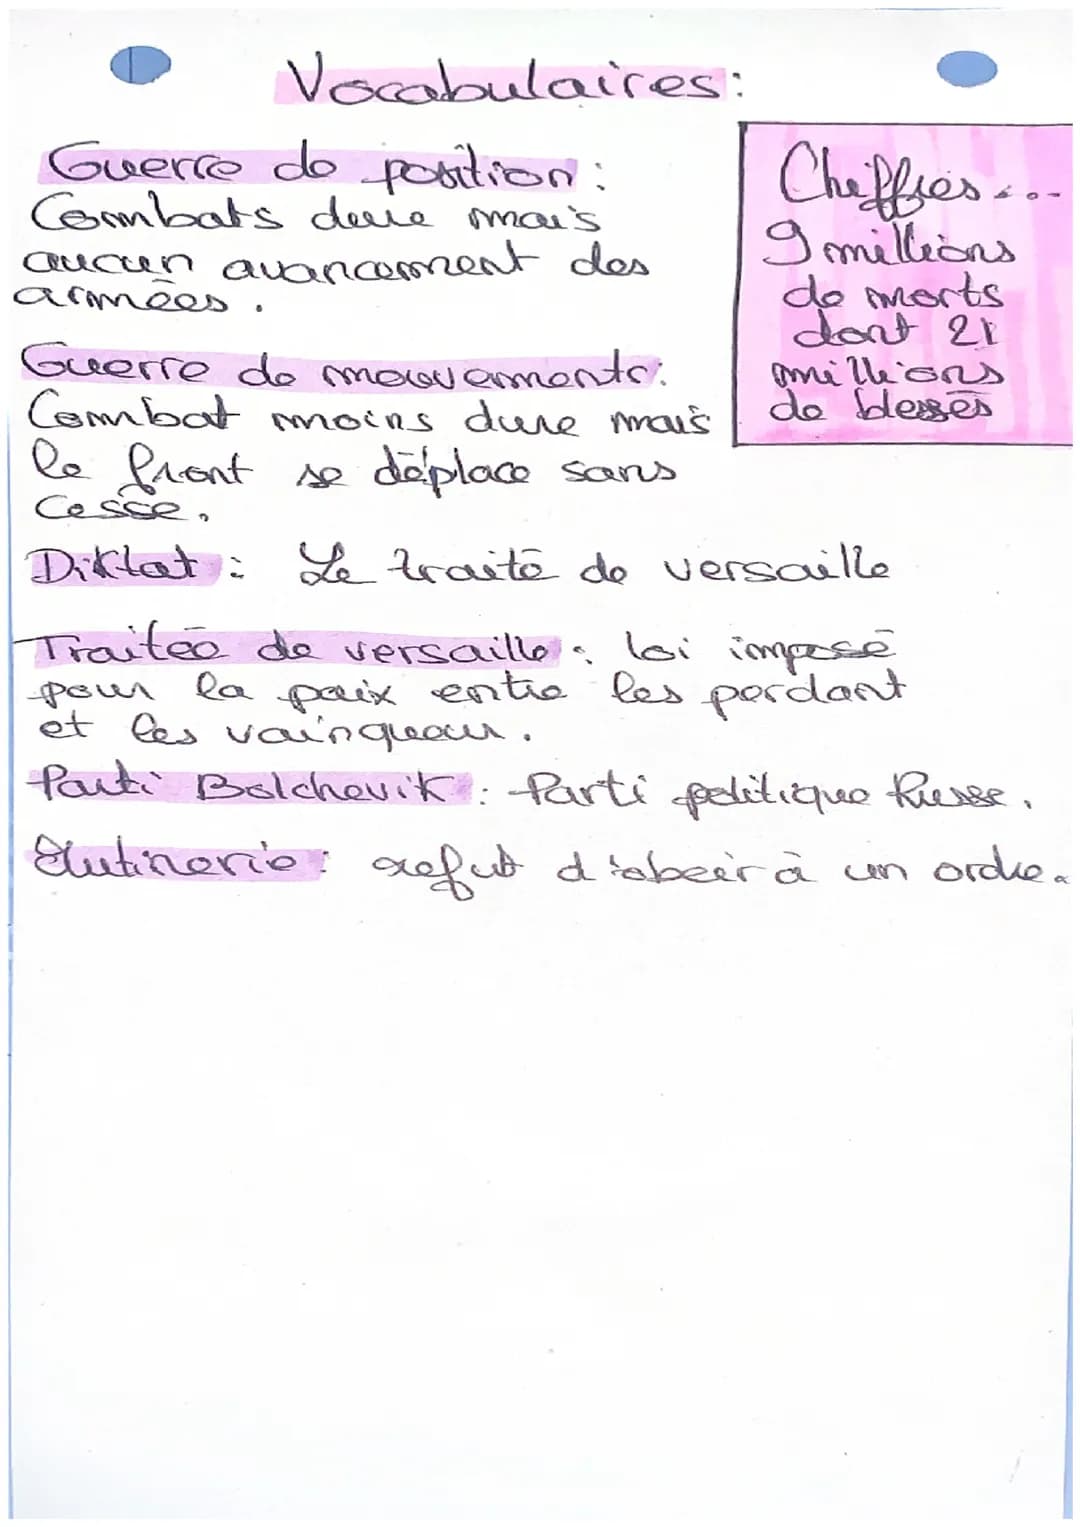 Vocabulaires:
Guerre de position :
Combats dure mais
aucun avancement des
armées.
Guerre de mouvements:
Combat moins dure mais
le front se déplace sans
cesse.
Diktat : Le traité de versaille
Traitée de versaille : loi imposé
pour la paix entre les perdant
et les vainqueur.
Parti Bolchevik : Parti politique Russe.
Mutinerie : refut d'obeir à un ordre.
Cheiffres...
9 millions
de morts
dont 21
millions
de blessés